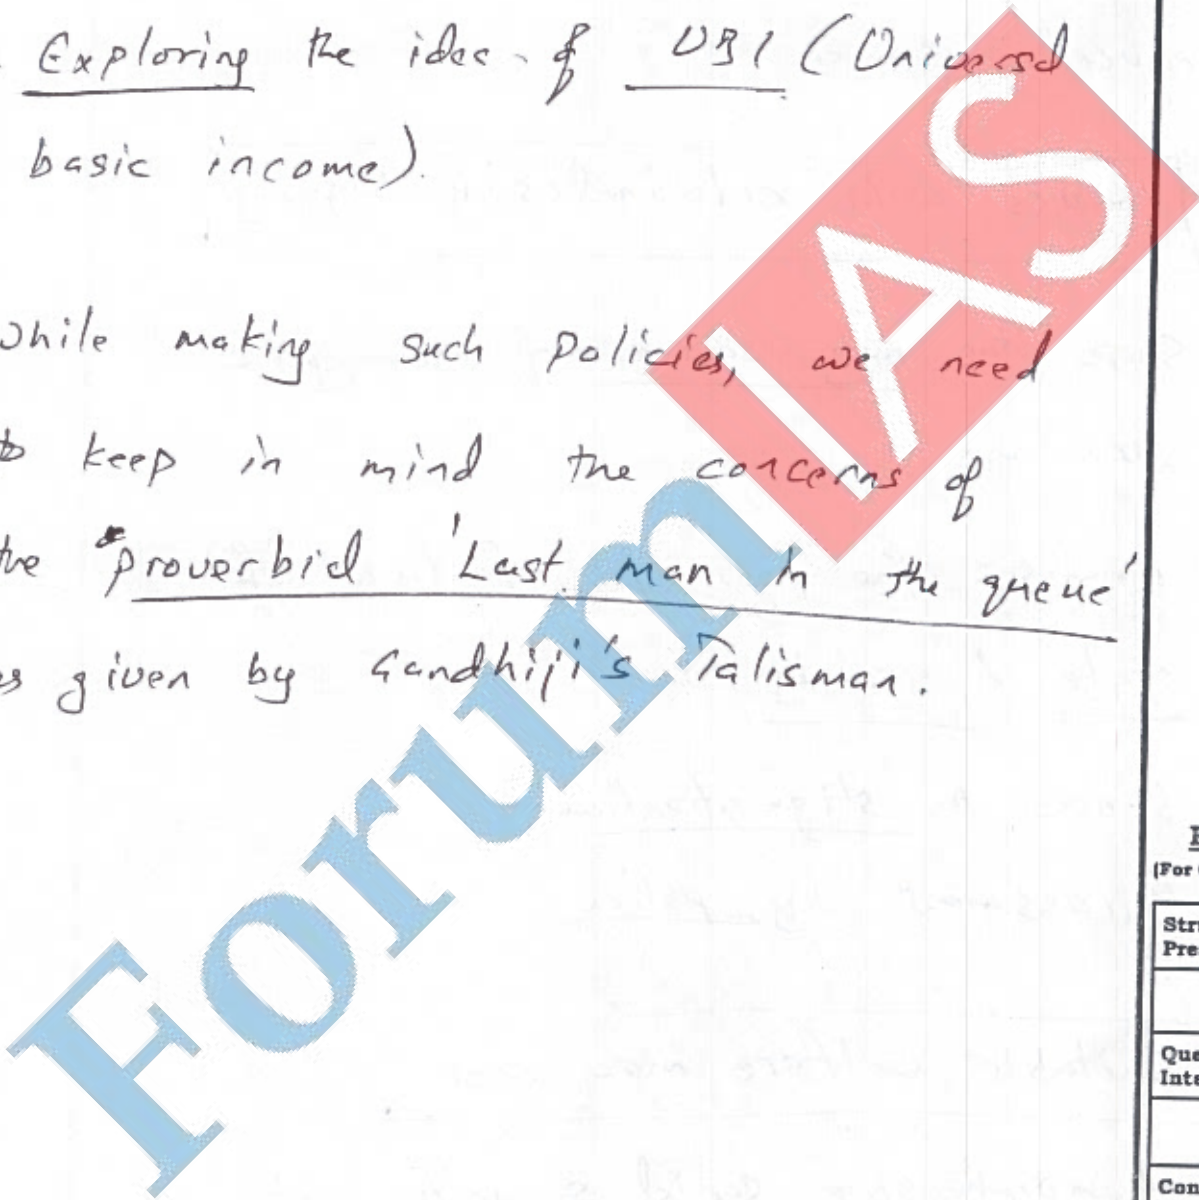 Exploring the idea of UBI (Universal
basic income).
while making such policies, we need
to keep in mind the concerns of
the proverbial 'Last man in the queue'
as given by Gandhiji's Talisman.
Forum IAS
(For